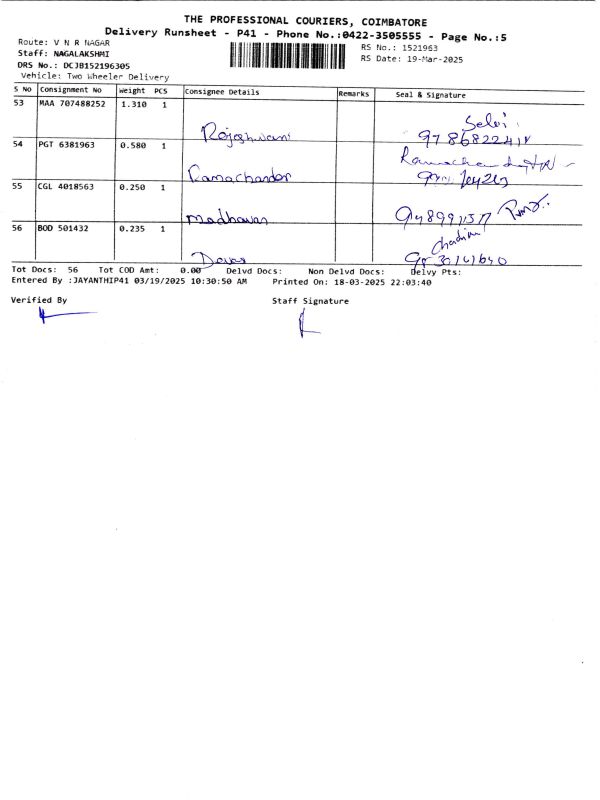 THE PROFESSIONAL COURIERS, COIMBATORE
Delivery Runsheet - P41 - Phone No.:0422-3505555 - Page No.:5
Route: V N R NAGAR
RS No.: 1521963
Staff: NAGALAKSHMI
RS Date: 19-Mar-2025
DRS No.: DCJB152196305
Vehicle: Two Wheeler Delivery
S No Consignment No Weight PCS Consignee Details Remarks Seal & Signature
53 MAA 707488252 1.310 1
Selvi
Rajeshwari 9786822414
54 PGT 6381963 0.580 1
Ramachandran
55 CGL 4018563 0.250 1
Madhavan
56 BOD 501432 0.235 1
Tot Docs: 56 Tot COD Amt: 0.00 Delvd Docs: Non Delvd Docs: Delvy Pts:
Entered By :JAYANTHIP41 03/19/2025 10:30:50 AM Printed On: 18-03-2025 22:03:40
Verified By Staff Signature